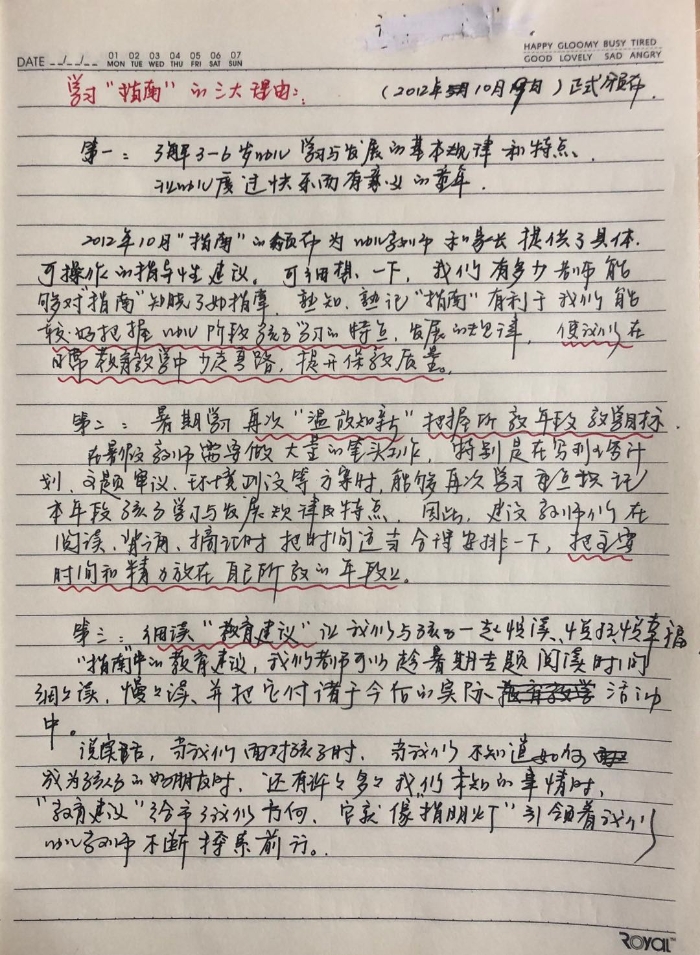 DATE __/__/__ 01 02 03 04 05 06 07
MON TUE WED THU FRI SAT SUN
HAPPY GLOOMY BUSY TIRED
GOOD LOVELY SAD ANGRY
学习“指南”的三大理由：
(2012年10月)正式颁布.
第一：了解3-6岁幼儿学习与发展的基本规律和特点、
让幼儿度过快乐而有意义的童年.
2012年10月“指南”的颁布为幼儿教师和家长提供了具体.
可操作的指导性建议。可细想一下, 我们有多少老师能
够对“指南”知晓了如指掌. 熟知、熟记“指南”有利于我们能
较好把握幼儿阶段孩子学习的特点, 发展的规律, 使我们在
日常教育教学中少走弯路, 提升保教质量。
第二：暑期学习再次“温故知新”把握所教年段教学目标.
在暑假教师需要做大量的笔头工作, 特别是在写到各计
划、文题审议、环境创设等方案时, 能够再次学习重点标记
本年段孩子学习与发展规律及特点. 因此, 建议教师们在
阅读、背诵、摘记时把时间适当合理安排一下, 把主要
时间和精力放在自己所教的年段上。
第三：细读“教育建议”让我们与孩子一起悦读、悦玩悦幸福
“指南”中的教育建议, 我们老师可以趁暑期专题阅读时间
细々读、慢々读、并把它付诸于今后的实际活动
中。
说实话, 当我们面对孩子时、当我们不知道如何
成为孩子们的好朋友时, 还有许々多々我们未知的事情时,
“教育建议”给予了我们方向, 它就像“指明灯”引领着我们
幼儿教师不断探索前行。
ROYAL